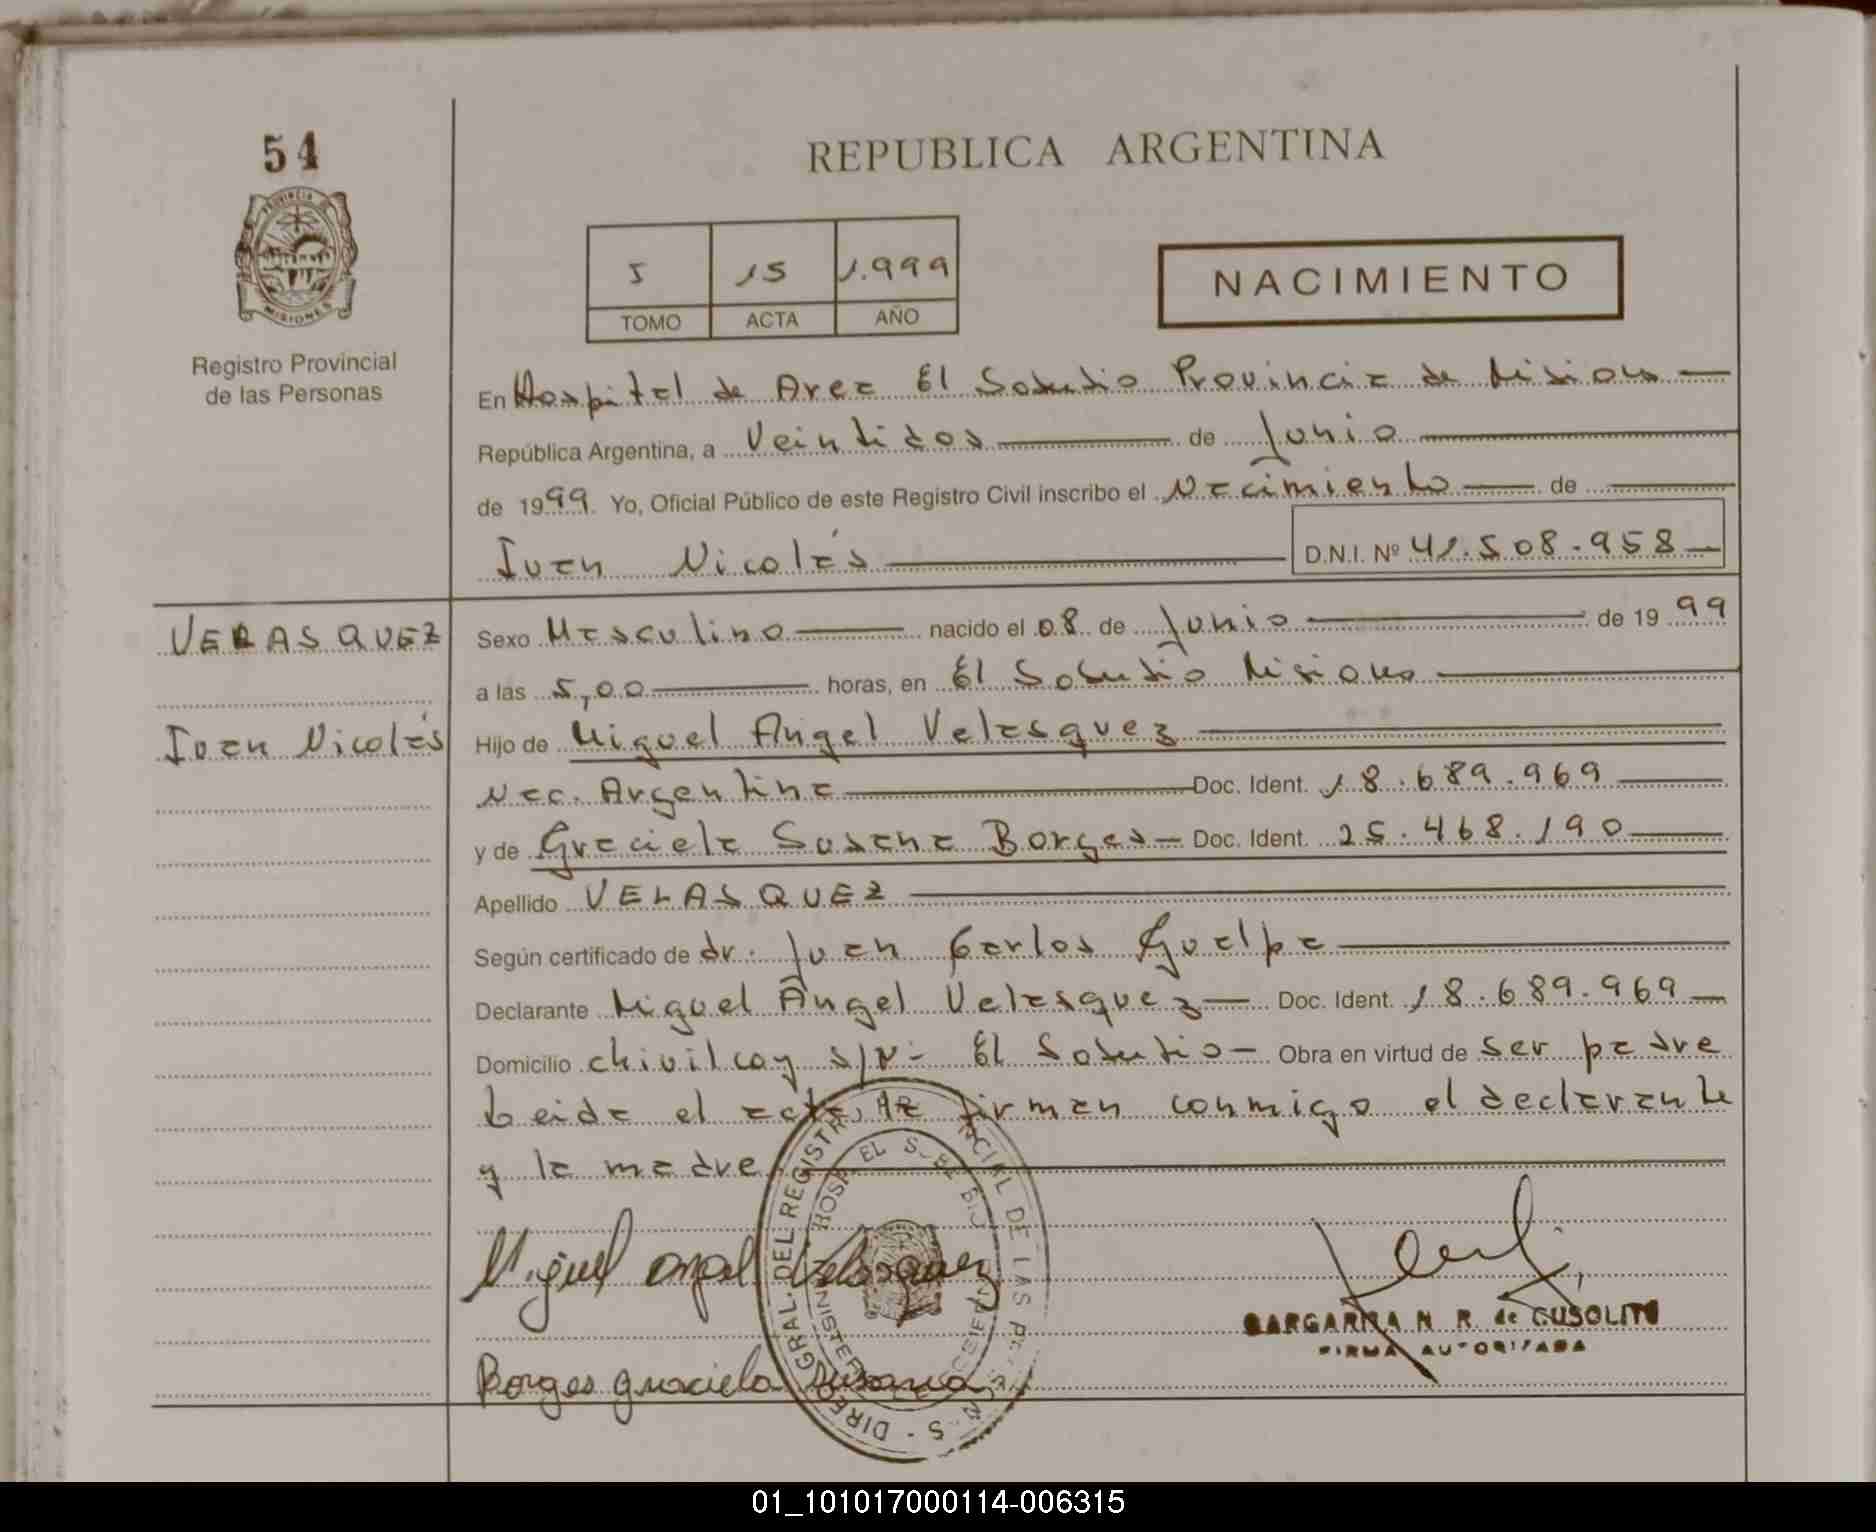 54
PROVINCIA DE
MISIONES
Registro Provincial
de las Personas
REPUBLICA ARGENTINA
I 15 1.999
TOMO ACTA AÑO
NACIMIENTO
En Hospital de Area El Soberbio Provincia de Misiones
República Argentina, a Veintidos de Junio
de 1999. Yo, Oficial Público de este Registro Civil inscribo el Nacimiento de
Ivan Nicolás D.N.I. Nº 41.508.958
VELASQUEZ
Ivan Nicolás
Sexo Masculino nacido el 08 de Junio de 1999
a las 5,00 horas, en El Soberbio Misiones
Hijo de Miguel Angel Velasquez
Nac. Argentina Doc. Ident. 18.689.969
y de Graciela Susana Borges Doc. Ident. 25.468.190
Apellido VELASQUEZ
Según certificado de dr. Juan Carlos Guelpa
Declarante Miguel Angel Velasquez Doc. Ident. 18.689.969
Domicilio chivilcoy s/Nº El Soberbio Obra en virtud de ser padre
Leida el acta, firman conmigo el declarante
y la madre
Miguel angel Velasquez
Borges graciela Susana
HOSP. EL SOBERBIO
FIRMA AUTORIZADA
01_101017000114-006315